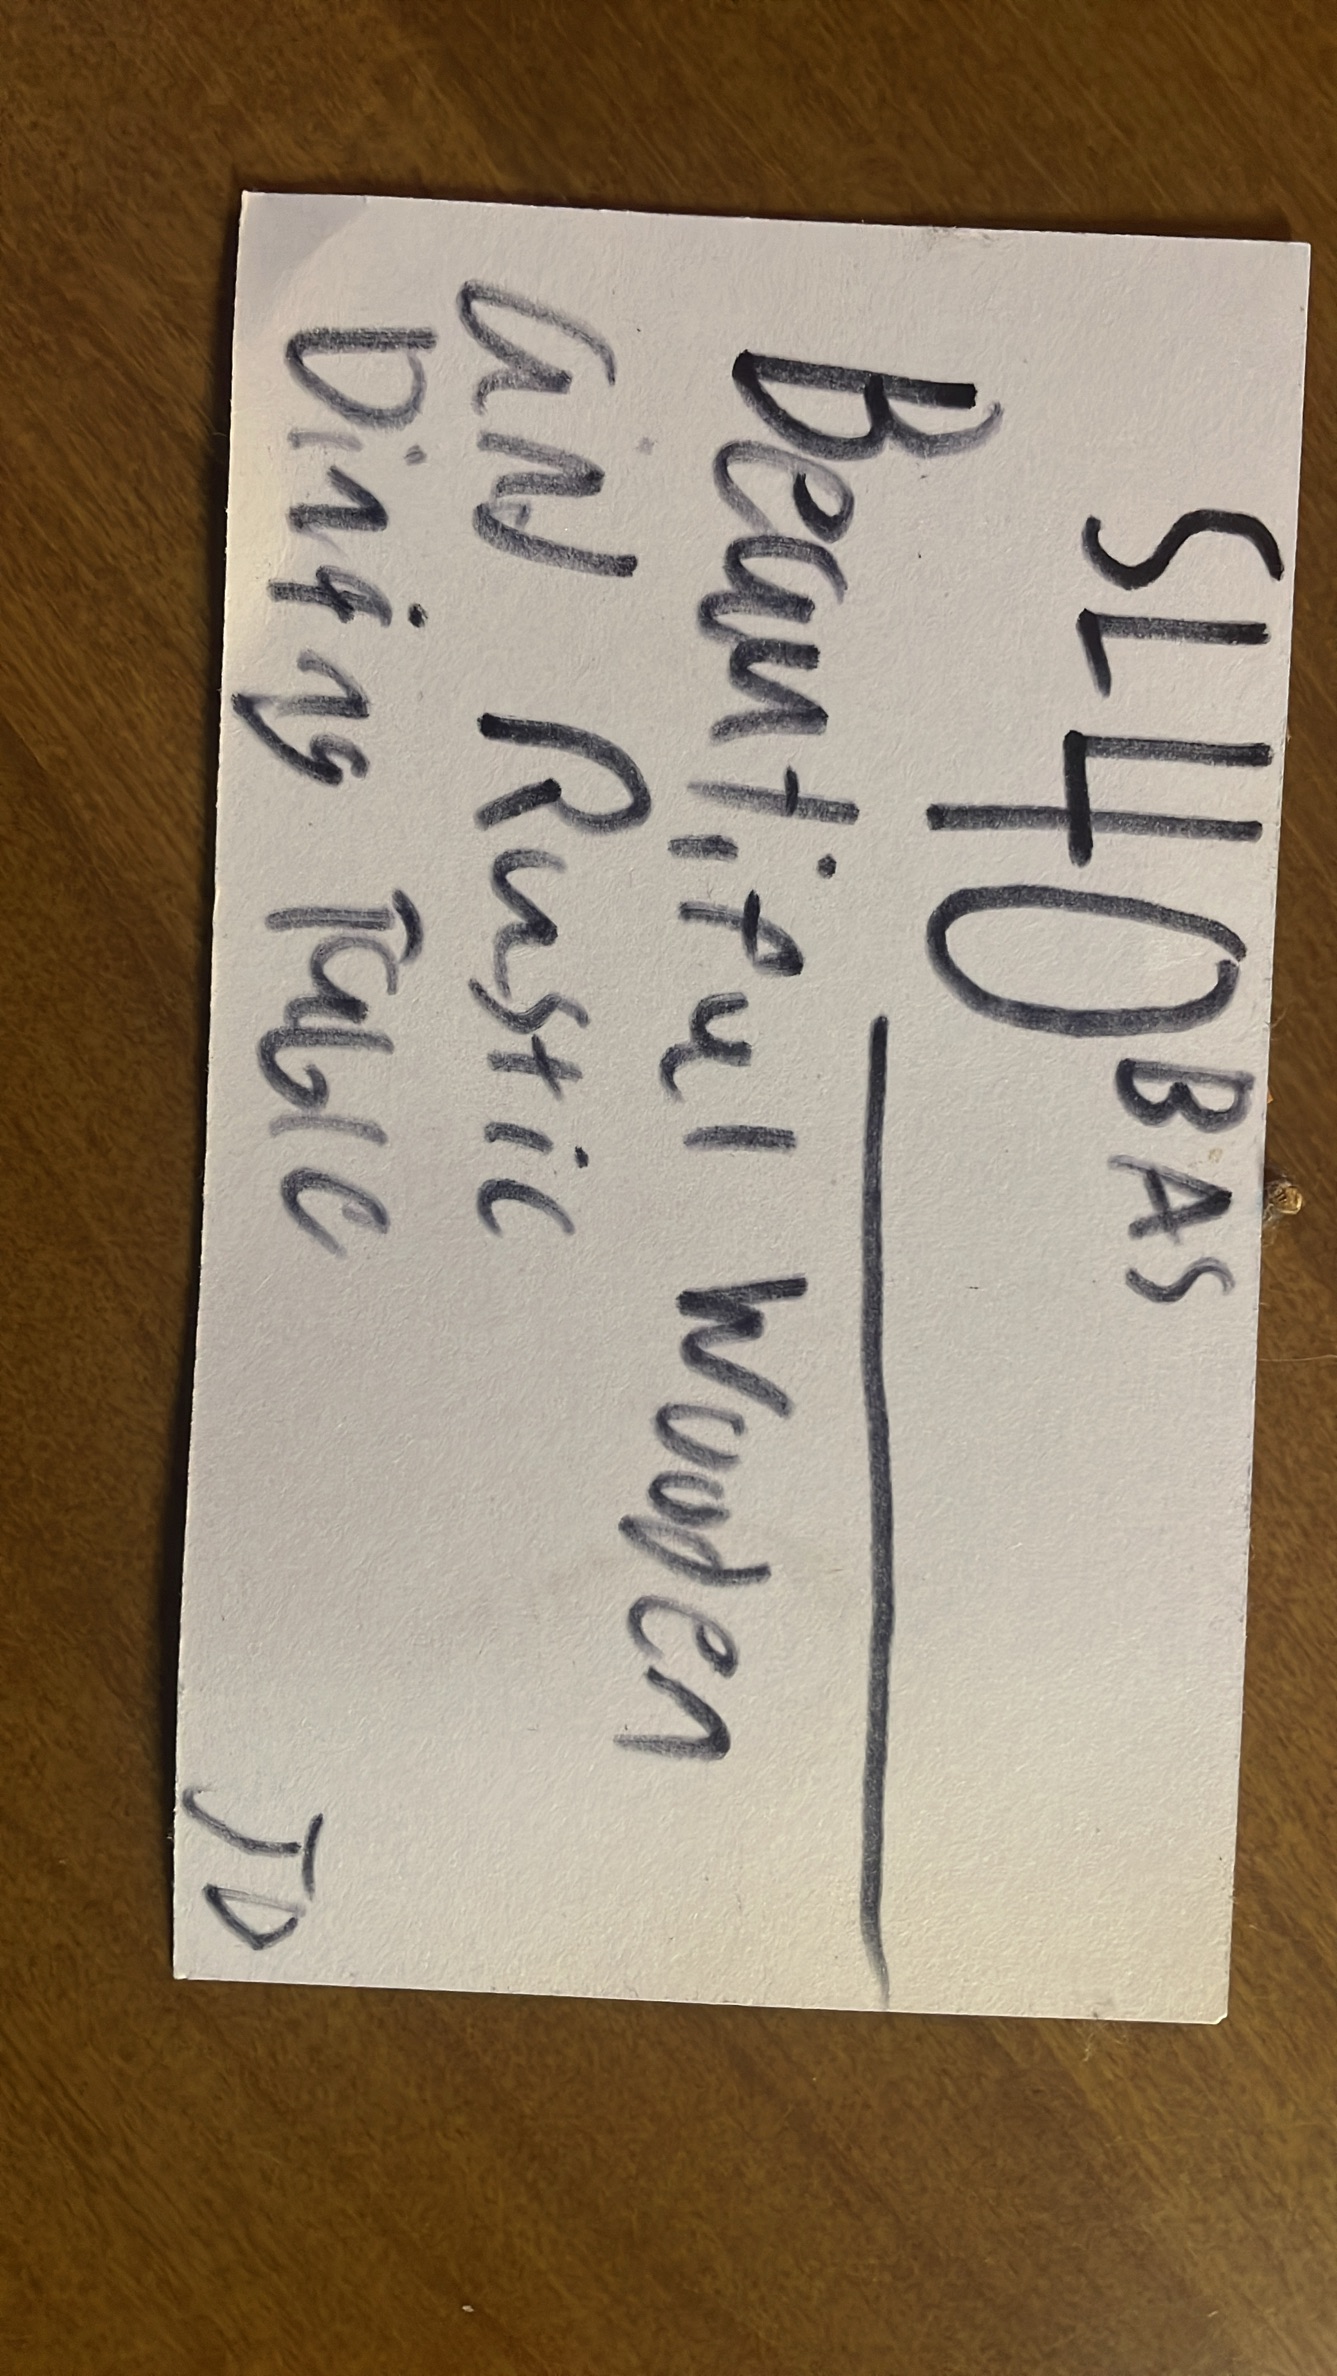 SL40 BAS
Beautiful Wooden
and Rustic
Dining Table
JD